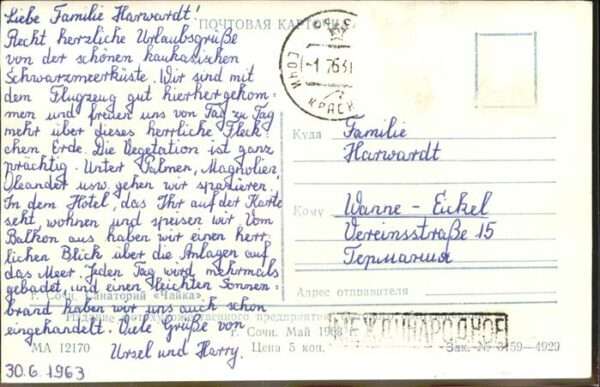 Liebe Familie Harwardt!
Recht herzliche Urlaubsgrüße
von der schönen kaukasischen
Schwarzmeerküste. Wir sind mit
dem Flugzeug gut hierhergekom-
men und freuen uns von Tag zu Tag
mehr über dieses herrliche Fleck-
chen Erde. Die Vegetation ist ganz
prächtig. Unter Palmen, Magnolien,
Oleander usw. gehen wir spazieren.
In dem Hotel, das Ihr auf der Karte
seht wohnen und speisen wir. Vom
Balkon aus haben wir einen herr-
lichen Blick über die Anlagen auf
das Meer. Jeden Tag wird mehrmals
gebadet, und einen leichten Sonnen-
brand haben wir uns auch schon
eingehandelt. Viele Grüße von
Ursel und Harry.
30.6.1963
ПОЧТОВАЯ КАРТОЧКА
СОЧИ
Куда
Familie
Harwardt
Кому
Wanne - Eickel
Vereinsstraße 15
Германия
Адрес отправителя
г. Сочи. Санаторий «Чайка».
г. Сочи. Май 1963
МЕЖДУНАРОДНОЕ
МА 12170
Цена 5 коп.
Зак. № 3159—4929